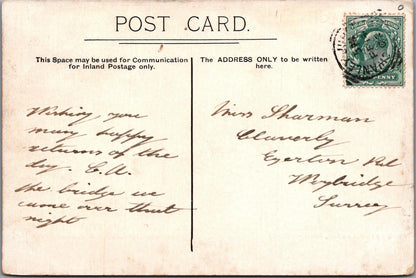 POST CARD.
This Space may be used for Communication
for Inland Postage only.
The ADDRESS ONLY to be written
here.
Wishing you
many happy
returns of the
day. C.U.
the bridge we
came over that
night
Miss Sharman
Claverly
Egerton Rd
Weybridge
Surrey
PENNY